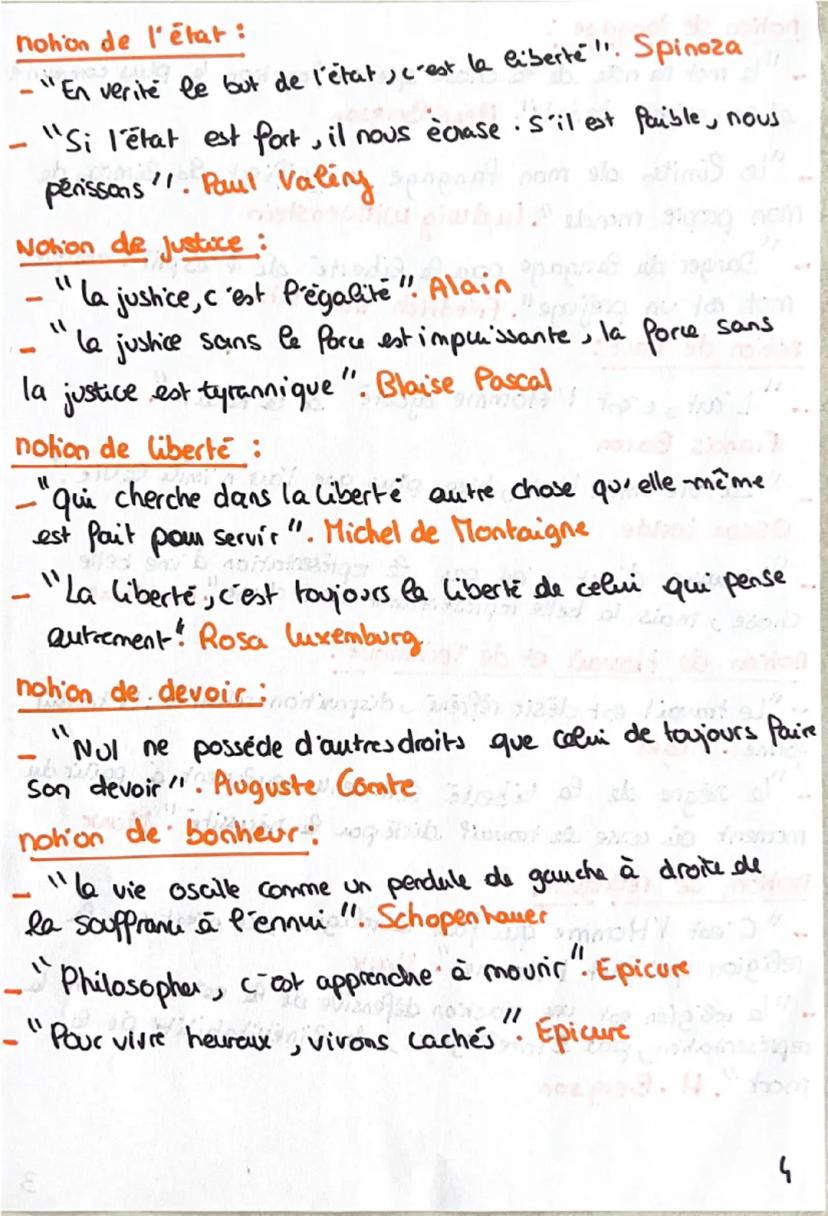 notion de l'état :
- "En verité le but de l'état, c'est la liberté". Spinoza
- "Si l'état est fort, il nous écrase : s'il est faible, nous
périssons". Paul Valéry
Notion de justice :
- "La justice, c'est l'égalité". Alain
- "La justice sans la force est impuissante, la force sans
la justice est tyrannique". Blaise Pascal
notion de liberté :
- "qui cherche dans la liberté autre chose qu'elle-même
est fait pour servir". Michel de Montaigne
- "La liberté, c'est toujours la liberté de celui qui pense
autrement". Rosa Luxemburg
notion de devoir :
- "Nul ne posséde d'autres droits que celui de toujours faire
son devoir". Auguste Comte
notion de bonheur :
- "la vie oscille comme un pendule de gauche à droite de
la souffrance à l'ennui". Schopenhauer
- "Philosopher, c'est apprendre à mourir". Epicure
- "Pour vivre heureux, vivons cachés". Épicure
4